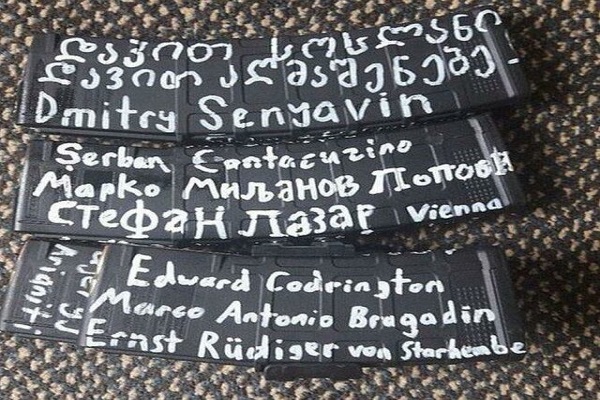 დავით სოსლანი
დავით აღმაშენებე
Dmitry Senyavin
Serban Cantacuzino
Марко Миљанов Попови
Стефан Лазар Vienna
Edward Codrington
Marco Antonio Bragadin
Ernst Rüdiger von Starhembe